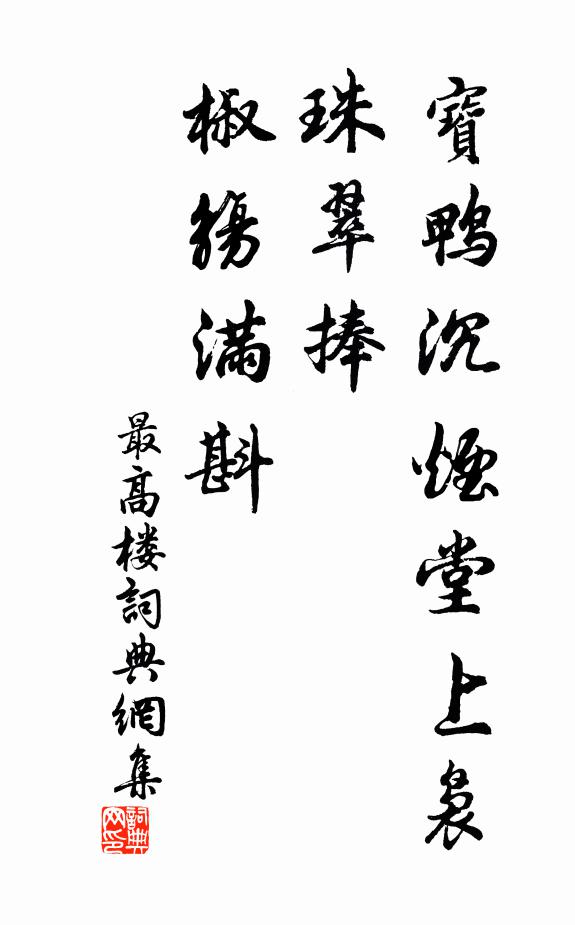 寶鴨沉煙堂上裊
珠翠捧
椒觴滿斟
最高楼詞典網集
詞典网印